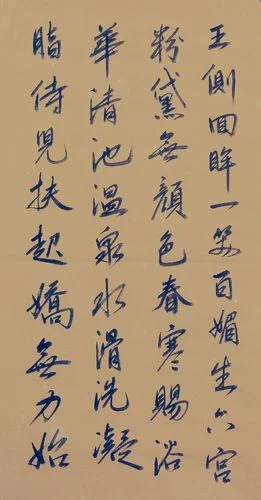 王側回眸一笑百媚生六宮
粉黛無顏色春寒賜浴
華清池温泉水滑洗凝
脂侍兒扶起嬌無力始